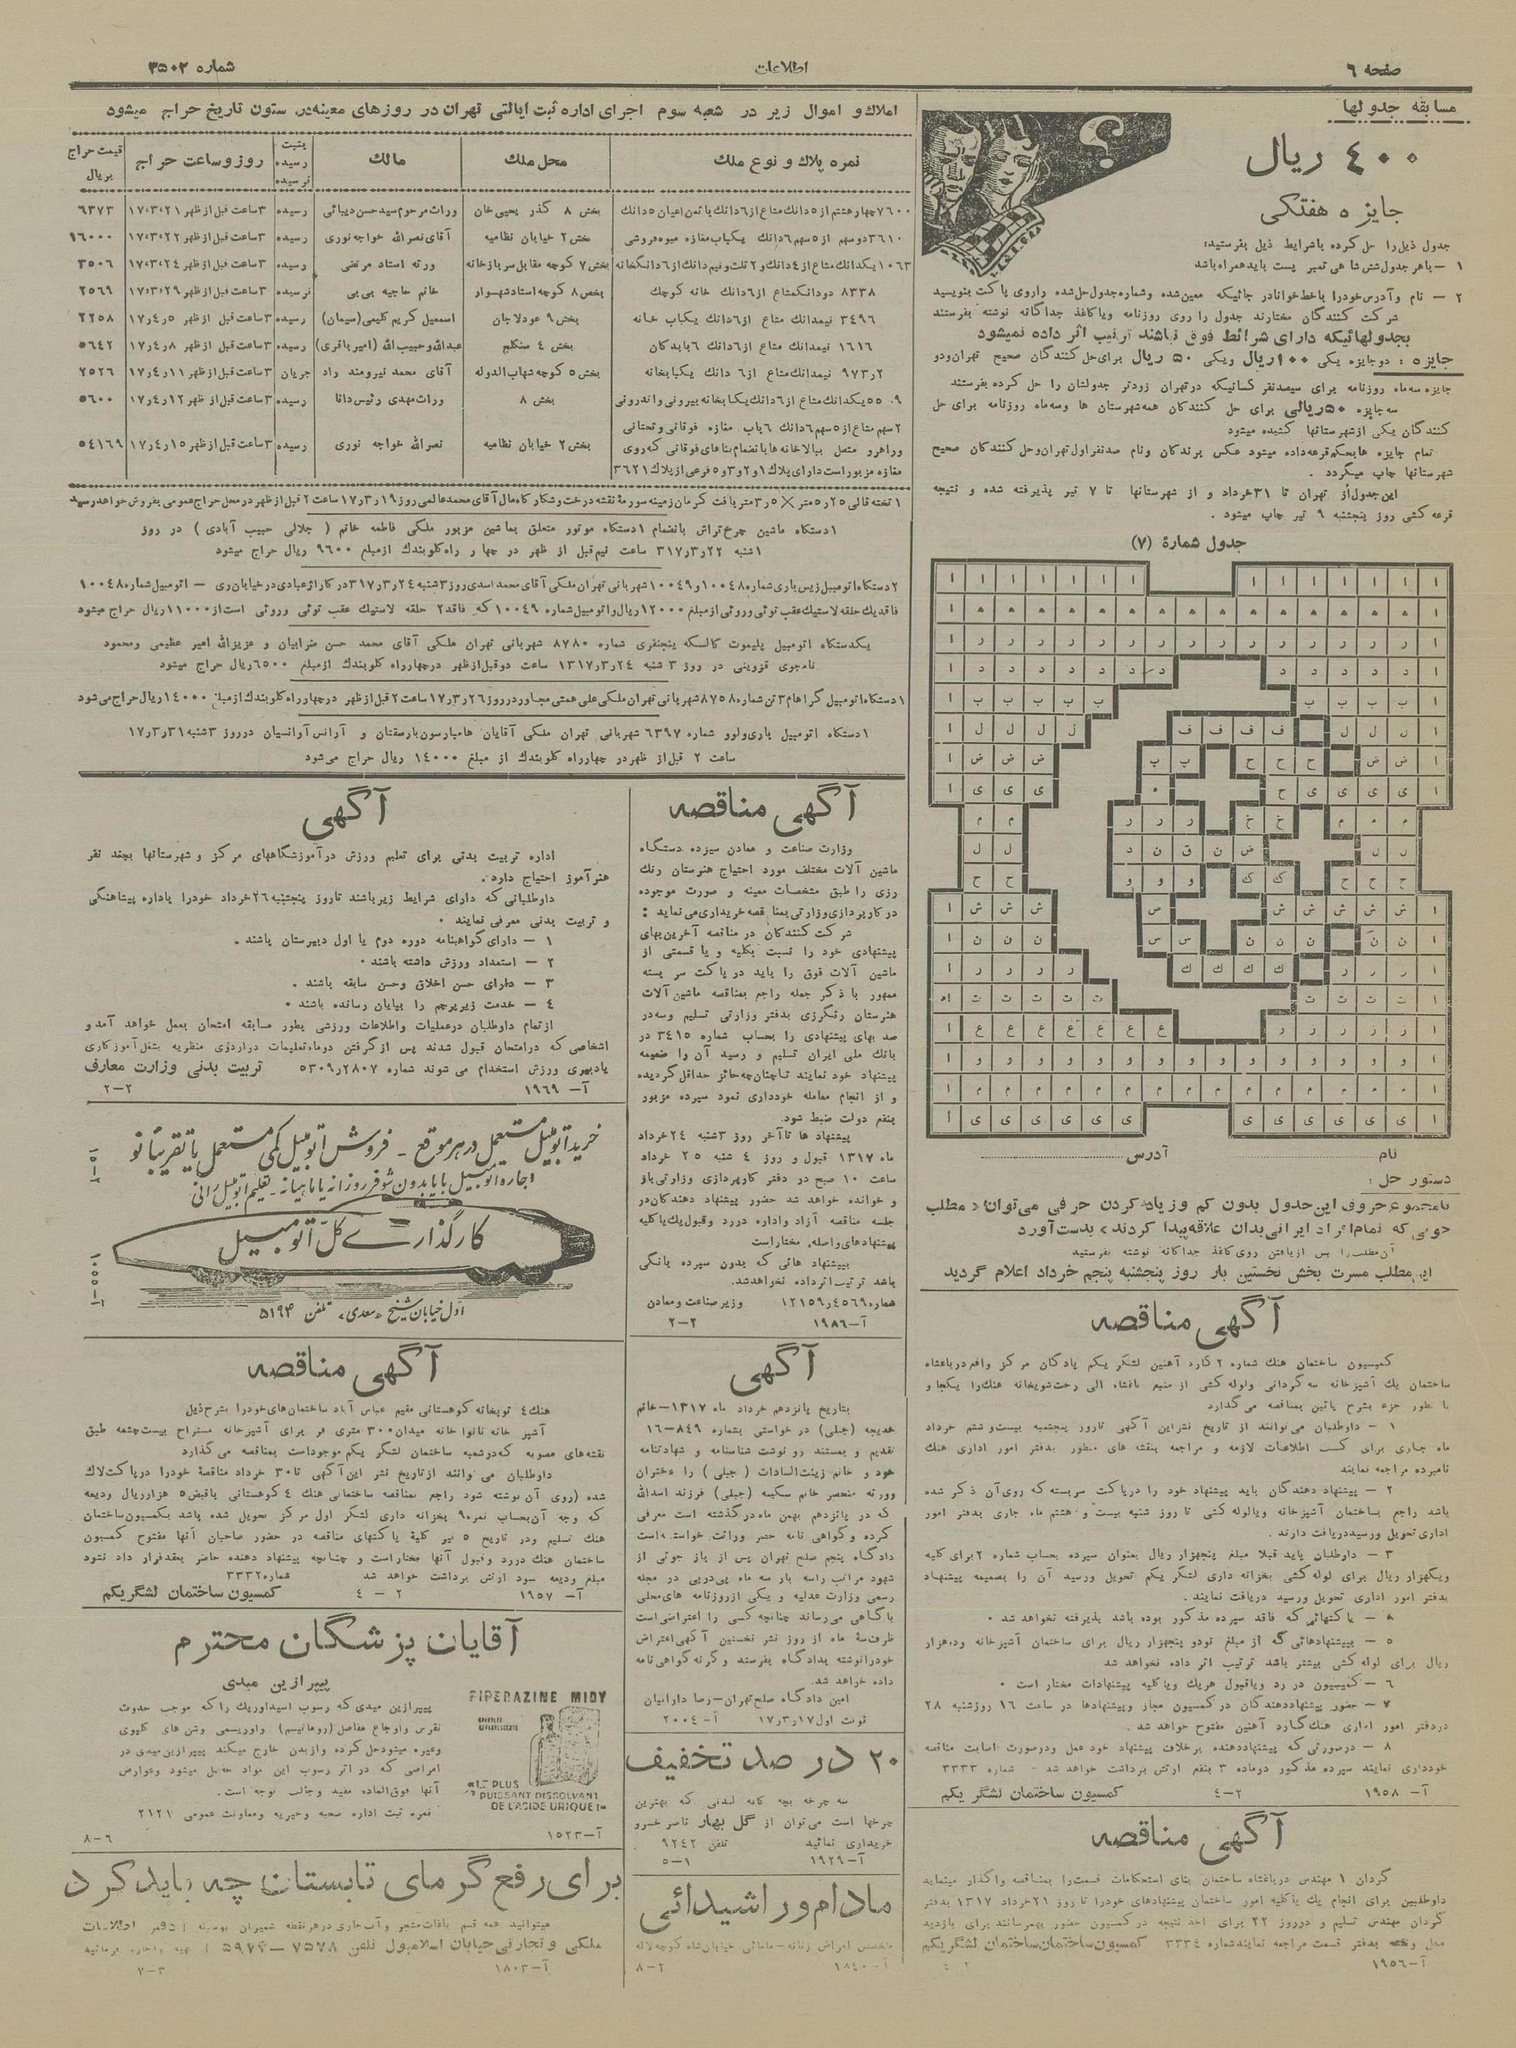 صفحه ۶
اطلاعات
شماره ۳۵۰۲
مسابقه جدولها
۴۰۰ ریال
جایزه هفتگی
جدول ذیل را حل کرده باشرایط ذیل بفرستید:
۱ — باهر جدول شش شاهی تمبر پست باید همراه باشد
۲ — نام وآدرس خودرا باخط خوانادر جائیکه معین شده وشماره جدول حل شده راروی پاکت بنویسید
شرکت کنندگان مختارند جدول را روی روزنامه ویاکاغذ جداگانه نوشته بفرستند
بجدولهائیکه دارای شرائط فوق نباشند ترتیب اثر داده نمیشود
جایزه : دوجایزه یکی ۱۰۰ریال ویکی ۵۰ ریال برای حل کنندگان صحیح تهران ودو
جایزه سه‌ماه روزنامه برای سیصدنفر کسانیکه درتهران زودتر جدولشان را حل کرده بفرستند
سه جایزه ۵۰ریالی برای حل کنندگان همه شهرستان ها وسه‌ماه روزنامه برای حل
کنندگان یکی ازشهرستانها کشیده میشود
تمام جایزه هابحکم قرعه داده میشود عکس برندگان ونام صدنفراول تهران وحل کنندگان صحیح
شهرستانها چاپ میگردد .
این جدول از تهران تا ۳۱خرداد و از شهرستانها تا ۷ تیر پذیرفته شده و نتیجه
قرعه کشی روز پنجشنبه ۹ تیر چاپ میشود .
جدول شمارهٔ (۷)
نام
آدرس
دستور حل :
بامجموع حروف این جدول بدون کم وزیاد کردن حرفی می‌توان « مطلب
که تمام افراد ایرانی بدان علاقه پیدا کردند » بدست آورد
آن مطلب را پس ازیافتن روی کاغذ جداگانه نوشته بفرستید
این مطلب مسرت بخش نخستین بار روز پنجشنبه پنجم خرداد اعلام گردید
آگهی مناقصه
کمیسیون ساختمان هنگ شماره ۲ گارد آهنین لشگر یکم پادگان مرکز واقع درباغشاه
ساختمان یک آشپزخانه سه گردانی ولوله کشی از منبع باغشاه الی رخت‌شویخانه هنگ را یکجا و
یا بطور جزء بشرح پائین بمناقصه می گذارد
۱ — داوطلبان می‌توانند از تاریخ نشر این آگهی تاروز پنجشنبه بیست‌وشم خرداد
ماه جاری برای کسب اطلاعات لازمه و مراجعه بنقشه های منظور بدفتر امور اداری هنگ
نامبرده مراجعه نمایند
۲ — پیشنهاد دهندگان باید پیشنهاد خود را درپاکت سربسته که روی آن ذکر شده
باشد راجع بساختمان آشپزخانه ویالوله کشی تا روز شنبه بیست و هشتم ماه جاری بدفتر امور
اداری تحویل ورسیددریافت دارند .
۳ — داوطلبان باید قبلا مبلغ پنجهزار ریال بعنوان سپرده بحساب شماره ۲برای کلیه
ویکهزار ریال برای لوله کشی بخزانه داری لشگر یکم تحویل ورسید آن را بضمیمه پیشنهاد
بدفتر امور اداری تحویل ورسید دریافت نمایند .
۴ — پاکتهائی که فاقد سپرده مذکور بوده باشد پذیرفته نخواهد شد .
۵ — بپیشنهادهائی که از مبلغ نودو پنجهزار ریال برای ساختمان آشپزخانه وده‌هزار
ریال برای لوله کشی بیشتر باشد ترتیب اثر داده نخواهد شد
۶ — کمیسیون در رد ویاقبول هریک ویاکلیه پیشنهادات مختار است .
۷ — حضور پیشنهاددهندگان در کمیسیون مجاز وپیشنهادها در ساعت ۱۶ روزشنبه ۲۸
دردفتر امور اداری هنگ گارد آهنین مفتوح خواهد شد .
۸ — درصورتی که پیشنهاددهنده برخلاف پیشنهاد خود عمل ودرصورت اصابت مناقصه
خودداری نمایند سپرده مذکور درماده ۳ بنفع ارتش برداشت خواهد شد - شماره ۳۳۳۳
آ— ۱۹۵۸ ۲—۴ کمسیون ساختمان لشگر یکم
آگهی مناقصه
گردان ۱ مهندس درباغشاه ساختمان بنای استحکامات قسمت‌را بمناقصه واگذار مینماید
داوطلبین برای انجام یک یاکلیه امور ساختمان پیشنهادهای خودرا تا روز ۲۱خرداد ۱۳۱۷ بدفتر
گردان مهندس تسلیم و درروز ۲۲ برای اخذ نتیجه درکمسیون حضور بهم‌رسانند برای بازدید
محل ونقشه بدفتر قسمت مراجعه نمایند شماره ۳۳۳۴ کمسیون ساختمان ساختمان لشگر یکم
آ—۱۹۵۶
املاک و اموال زیر در شعبه سوم اجرای اداره ثبت ایالتی تهران در روزهای معینه در ستون تاریخ حراج میشود
نمره پلاک و نوع ملک | محل ملک | مالک | بثبت رسیده نرسیده | روز وساعت حراج | قیمت حراج بریال
۷۶۰۰ چهارهشتم از ۵دانک متاع از۶دانک باثمن اعیان ۵دانک | بخش ۸ گذر یحیی خان | وراث مرحوم سیدحسن دیبائی | رسیده | ۳ساعت قبل از ظهر ۱۷،۳،۲۱ | ۶۳۷۳
۳۶۱۰ دوسهم از ۵سهم ۶دانک یکباب مغازه میوه‌فروشی | بخش ۲ خیابان نظامیه | آقای نصرالله خواجه نوری | رسیده | ۳ساعت قبل از ظهر ۱۷،۳،۲۲ | ۱۶۰۰۰
۱۰۶۳ یکدانک متاع از ۴دانک و ۲ ثلث ونیم دانک از۶دانک خانه | بخش ۷ کوچه مقابل سربازخانه | ورثه استاد مرتضی | رسیده | ۳ساعت قبل از ظهر ۱۷،۳،۲۴ | ۳۵۰۶
۸۳۳۸ دودانگ متاع از۶دانک خانه کوچک | بخش ۸ کوچه استاد شهسوار | خانم حاجیه بی بی | نرسیده | ۳ساعت قبل از ظهر ۱۷،۳،۲۹ | ۲۵۶۹
۳۴۹۶ نیمدانک متاع از۶دانک یکباب خانه | بخش ۹ عودلاجان | اسمعیل کریم کلیمی (سیمان) | رسیده | ۳ساعت قبل از ظهر ۵ر۴ر۱۷ | ۲۲۵۸
۱۶۱۶ نیمدانک متاع از۶دانک ۶باب‌دکان | بخش ۴ سنگلج | عبدالله وحبیب‌الله (امیرباقری) | رسیده | ۳ساعت قبل از ظهر ۸ر۴ر۱۷ | ۵۶۴۲
۲ر۹۷۳ نیمدانک متاع از۶ دانک یکبابخانه | بخش ۵ کوچه شهاب الدوله | آقای محمد نیرومند راد | جریان | ۳ساعت قبل از ظهر ۱۱ر۴ر۱۷ | ۲۵۲۶
۵۵۰۹ یکدانک متاع از۶دانک یکبابخانه بیرونی واندرونی | بخش ۸ | وراث مهدی رئیس دانا | رسیده | ۳ساعت قبل از ظهر ۱۲ر۴ر۱۷ | ۵۶۰۰
۲سهم متاع از۵سهم ۶دانک ۶باب مغازه فوقانی وتحتانی
وراهرو متصل ببالاخانه ها باانضمام بناهای فوقانی که روی
مغازه مزبور است دارای پلاک ۱و۲و۳و۵ فرعی از پلاک ۳۶۲۱ | بخش ۲ خیابان نظامیه | نصرالله خواجه نوری | رسیده | ۳ساعت قبل از ظهر ۱۵ر۴ر۱۷ | ۵۴۱۶۹
۱ تخته قالی ۲۵ر۵متر × ۵ر۳متر بافت کرمان زمینه سورمهٔ نقشه درخت وشکارگاه مال آقای محمدعالمی روز ۱۹ر۳ر۱۷ ساعت ۲ قبل از ظهر درمحل حراج عمومی بفروش خواهد رسید
۱دستگاه ماشین چرخ تراش باانضمام ۱دستگاه موتور متعلق بماشین مزبور ملکی فاطمه خانم ( جلالی حبیب آبادی ) در روز
۱شنبه ۲۲ر۳ر۳۱۷ ساعت نیم قبل از ظهر در چهار راه گلوبندک ازمبلغ ۹۶۰۰ ریال حراج میشود
۲دستگاه اتومبیل زیس باری شماره ۱۰۰۴۸و۱۰۰۴۹ شهربانی تهران ملکی آقای محمد اسدی روز ۳شنبه ۲۴ر۳ر۳۱۷ در گاراژ عبادی درخیابان ری — اتومبیل شماره ۱۰۰۴۸
فاقد یک حلقه لاستیک عقب توئی وروئی ازمبلغ ۱۲۰۰۰ ریال واتومبیل شماره ۱۰۰۴۹ که فاقد۲ حلقه لاستیک عقب توئی وروئی است از۱۱۰۰۰ریال حراج میشود
یکدستگاه اتومبیل پلیموت کالسکه پنجنفری شماره ۸۷۸۰ شهربانی تهران ملکی آقای محمد حسن ضرابیان و عزیزالله امیر عظیمی ومحمود
نامجوی قزوینی در روز ۳ شنبه ۲۴ر۳ر۱۳۱۷ ساعت دوقبل ازظهر درچهارراه گلوبندک ازمبلغ ۶۵۰۰ریال حراج میشود
۱دستگاه اتومبیل گراهام ۳تن شماره ۸۷۵۸ شهربانی تهران ملکی علی همتی مجاور در روز ۲۶ر۳ر۱۷ ساعت ۲ قبل از ظهر درچهارراه گلوبندک ازمبلغ ۱۴۰۰۰ ریال حراج می‌شود
۱دستگاه اتومبیل باری ولوو شماره ۶۳۹۷ شهربانی تهران ملکی آقایان هامبارسون بارسقتان و آرانس آوانسیان درروز ۳شنبه ۳۱ر۳ر۱۷
ساعت ۲ قبل از ظهر در چهارراه گلوبندک از مبلغ ۱۴۰۰۰ ریال حراج می‌شود
آگهی مناقصه
وزارت صناعت و معادن سیزده دستگاه
ماشین آلات مختلف مورد احتیاج هنرستان رنگ
رزی را طبق مشخصات معینه و صورت موجوده
در کارپردازی وزارتی بمناقصه خریداری می‌نماید :
شرکت کنندگان در مناقصه آخرین بهای
پیشنهادی خود را نسبت بکلیه و یا قسمتی از
ماشین آلات فوق را باید درپاکت سر بسته
ممهور با ذکر جمله راجع بمناقصه ماشین آلات
هنرستان رنگرزی بدفتر وزارتی تسلیم وسه‌در
صد بهای پیشنهادی را بحساب شماره ۳۴۱۵ در
بانک ملی ایران تسلیم و رسید آن را ضمیمه
پیشنهاد خود نمایند تاچنان‌چه حائز حداقل گردیده
و از انجام معامله خودداری نمود سپرده مزبور
بنفع دولت ضبط شود.
پیشنهاد ها تاآخر روز ۳شنبه ۲۴خرداد
ماه ۱۳۱۷ قبول و روز ۴ شنبه ۲۵ خرداد
ساعت ۱۰ صبح در دفتر کارپردازی وزارتی باز
و خوانده خواهد شد حضور پیشنهاد دهندگان در
جلسه مناقصه آزاد واداره در رد وقبول یک یا کلیه
پیشنهادهای واصله مختار است
بپیشنهاد هائی که بدون سپرده بانگی
باشد ترتیب اثرداده نخواهد شد.
شماره ۴۵۶۹ر۱۲۱۵۹ وزیر صناعت ومعادن
آ—۱۹۸۶ ۲—۲
آگهی
بتاریخ پانزدهم خرداد ماه ۱۳۱۷—خانم
خدیجه (جبلی) در خواستی بشماره ۸۴۹—۱۶
تقدیم و بمستند رو نوشت شناسنامه و شهادتنامه
خود و خانم زینت‌السادات (جبلی) را دختران
وورثه منحصر خانم سکینه (جبلی) فرزند اسدالله
که در پانزدهم بهمن ماه در گذشته است معرفی
کرده و گواهی نامه حصر وراثت خواسته است
دادگاه پنجم صلح تهران پس از باز جوئی از
شهود مراتب راسه بار سه ماه پی‌درپی در مجله
رسمی وزارت عدلیه و یکی ازروزنامه های محلی
باگاهی می‌رساند چنانچه کسی را اعتراضی است
ظرف سهٔ ماه از روز نشر نخستین آگهی اعتراض
خودرانوشته بدادگاه بفرستد و گرنه گواهی نامه
داده خواهد شد.
امین دادگاه صلح تهران—رضا دارائیان
نوبت اول ۱۷ر۳ر۱۷ آ—۲۰۰۴
۲۰ در صد تخفیف
سه چرخه بچه کانه لندنی که بهترین
چرخها است می‌توان از گل بهار ناصر خسرو
خریداری نمائید تلفن ۹۲۴۲
آ—۱۹۲۹ ۱—۵
مادام وراشیدائی
متخصص امراض زنانه—مامائی خیابان شاه کوچه لاله
آ—۱۸۴۰ ۲—۸
آگهی
اداره تربیت بدنی برای تعلیم ورزش در آموزشگاههای مرکز و شهرستانها بچند نفر
هنرآموز احتیاج دارد.
داوطلبانی که دارای شرایط زیر باشند تاروز پنجشنبه ۲۶خرداد خودرا باداره پیشاهنگی
و تربیت بدنی معرفی نمایند .
۱ — دارای گواهینامه دوره دوم یا اول دبیرستان باشند .
۲ — استعداد ورزش داشته باشند .
۳ — دارای حسن اخلاق وحسن سابقه باشند .
۴ — خدمت زیرپرچم را بپایان رسانده باشند .
ازتمام داوطلبان درعملیات واطلاعات ورزشی بطور مسابقه امتحان بعمل خواهد آمد و
اشخاصی که درامتحان قبول شدند پس ازگرفتن دوماه تعلیمات دراردوی منظریه بشغل آموزگاری
یادبیری ورزش استخدام می شوند شماره ۲۸۰۷ر۵۳۰۹ تربیت بدنی وزارت معارف
آ— ۱۹۶۹ ۲—۲
خرید اتومبیل مستعمل در هر موقع - فروش اتومبیل کمی مستعمل یا تقریباً نو
اجاره اتومبیل با یا بدون شوفر روزانه یا ماهیانه - تعلیم اتومبیل رانی
کارگذاری کل اتومبیل
اول خیابان شیخ «سعدی» تلفن ۵۱۹۴
آگهی مناقصه
هنگ ۴ توپخانه کوهستانی مقیم عباس آباد ساختمان‌های خودرا بشرح ذیل
آشپز خانه نانوا خانه میدان ۳۰۰ متری فر برای آشپزخانه مستراح بیست چشمه طبق
نقشه‌های مصوبه که در شعبه ساختمان لشگر یکم موجوداست بمناقصه می گذارد
داوطلبان می توانند از تاریخ نشر این آگهی تا ۳۰ خرداد مناقصهٔ خودرا درپاکت لاک
شده (روی آن نوشته شود راجع بمناقصه ساختمانی هنگ ۴ کوهستانی باقبض ۵ هزارریال ودیعه
که وجه آن بحساب نمره ۹ بخزانه داری لشگر اول مرکز تحویل شده باشد بکمسیون ساختمان
هنگ تسلیم ودر تاریخ ۵ تیر کلیهٔ پاکتهای مناقصه در حضور صاحبان آنها مفتوح کمسیون
ساختمان هنگ در رد وقبول آنها مختار است و چنانچه پیشنهاد دهنده حاضر بعقد قرار داد نشود
مبلغ ودیعه سود ارتش برداشت خواهد شد شماره ۳۳۳۲
آ— ۱۹۵۷ ۲ — ۴ کمسیون ساختمان لشگر یکم
آقایان پزشگان محترم
پیپرازین میدی
PIPERAZINE MIDY
«LE PLUS
PUISSANT DISSOLVANT
DE L'ACIDE URIQUE»
پیپرازین میدی که رسوب اسیداوریک را که موجب حدوث
نقرس واوجاع مفاصل (روماتیسم) واوریسمی وشن های کلیوی
وغیره میشود حل کرده وازبدن خارج میکند پیپرازین میدی در
امراضی که در اثر رسوب این مواد حاصل میشود وعوارض
آنها فوق‌العاده مفید وجالب توجه است.
نمره ثبت اداره صحیه وخیریه ومعاونت عمومی ۲۱۲۱
آ—۱۵۲۳ ۶—۸
برای رفع گرمای تابستان چه باید کرد
میتوانید همه قسم باغات مشجر و آب جاری در هر نقطه شمیران بوسیله
ملکی و تجارتی خیابان اسلامبول تلفن ۷۵۷۸—۵۹۷۴ تهیه واجاره فرمائید
آ—۱۸۰۳ ۳—۷